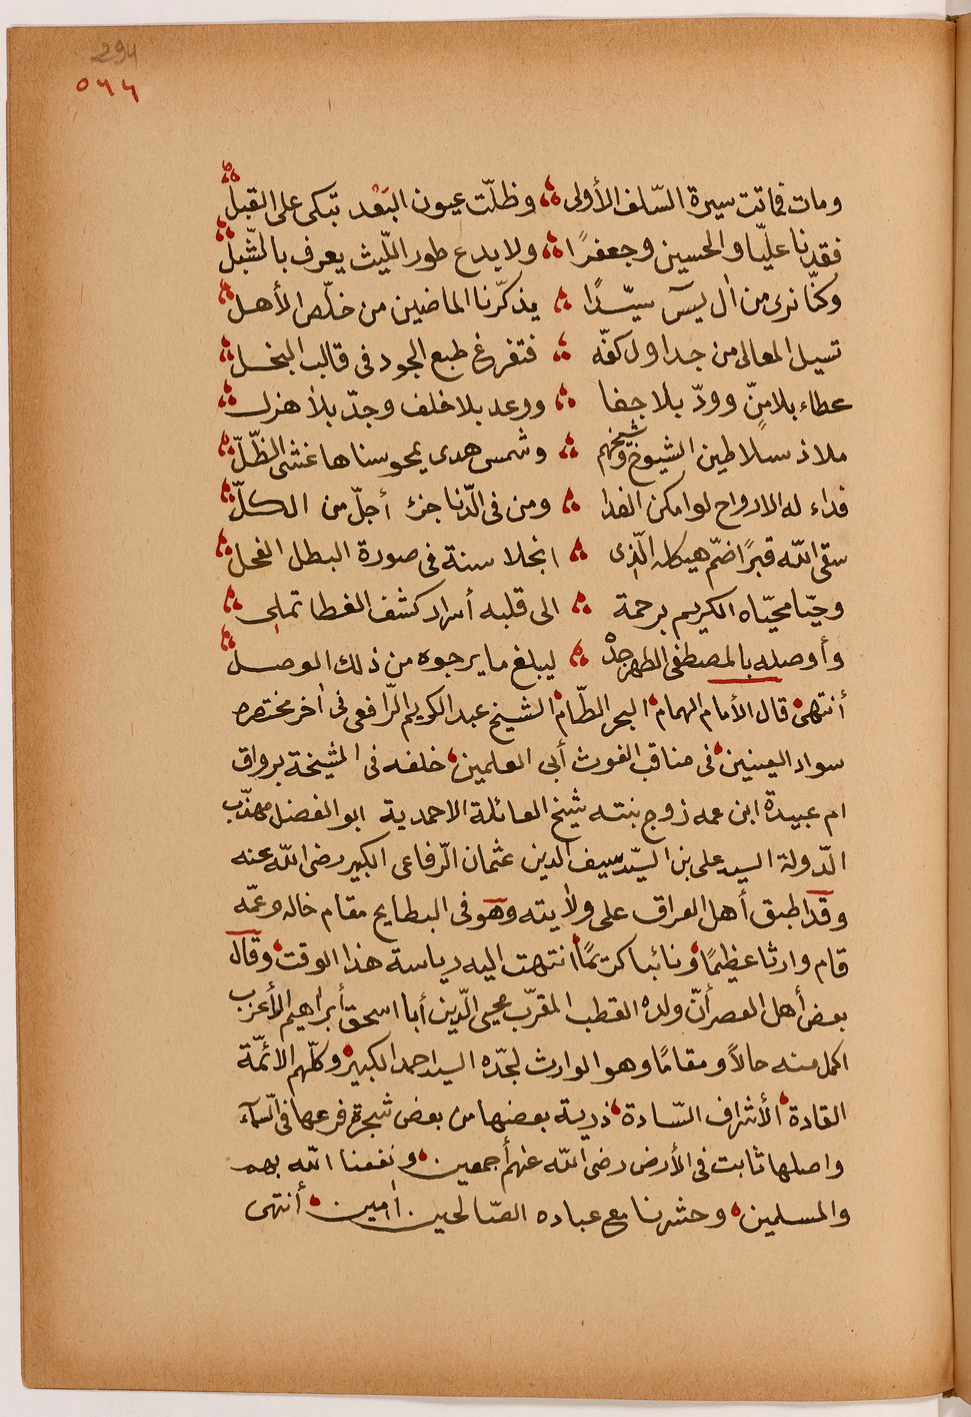 294
٥٦٦
ومات فماتت سيرة السّلف الأولى وظلّت عيون البَعْد تبكى على القبل
فقدنا عليّا والحسين وجعفرًا ولا يدع طور اللّيث يعرف بالشّبل
وكنّا نرى من اٰل يسۤ سيّدًا يذكّرنا الماضين من خلّص الأهل
تسيل المعالى من جداول كفّه فتفرغ طبع الجود فى قالب البخل
عطاء بلا منّ وودّ بلا جفا ووعد بلا خلف وجدّ بلا هزل
ملاذ سلاطين الشيوخ وشيخهم وشمس هدى يمحو سناها غشى الظّلّ
فداء له الارواح لو امكن الفدا ومن فى الدّنا جزء أجلّ من الكلّ
سقى الله قبرًا ضمّ هيكله الّذى انجلا سنة فى صورة البطل الفحل
وحيّا محيّاه الكريم برحمة الى قلبه أسرار كشف الغطا تملى
وأوصله بالمصطفى الطهر جدّه ليبلغ ما يرجوه من ذلك الوصل
أنتهى قال الأمام الهمام البحر الطّام الشيخ عبد الكريم الرّافعى فى اٰخر مختصره
سواد العينين فى مناقب الغوث أبى العلمين خلفه فى المشيخة برواق
ام عبيدة ابن عمه زوج بنته شيخ العائلة الاحمدية ابو الفضل مهذّب
الدّولة السيد على بن السيّد سيف الدين عثمان الرّفاعى الكبير رضى الله عنه
وقد اطبق أهل العراق على ولايته وهو فى البطايح مقام خاله وعمّه
قام وارثا عظيمًا ونائبا كريمًا انتهت اليه رياسة هذا الوقت وقال
بعض أهل العصر أنّ ولده القطب المقرّب محيى الدّين أبا اسحق أبراهيم الأعزب
اكمل منه حالاً ومقامًا وهو الوارث لجدّه السيد احمد الكبير وكلّهم الائمّة
القادة الأشراف السّادة ذرية بعضها من بعض شجرة فرعها فى السّمآء
واصلها ثابت فى الأرض رضى الله عنهم أجمعين ونفعنا الله بهم
والمسلمين وحشرنا مع عباده الصّالحين اٰمين أنتهى